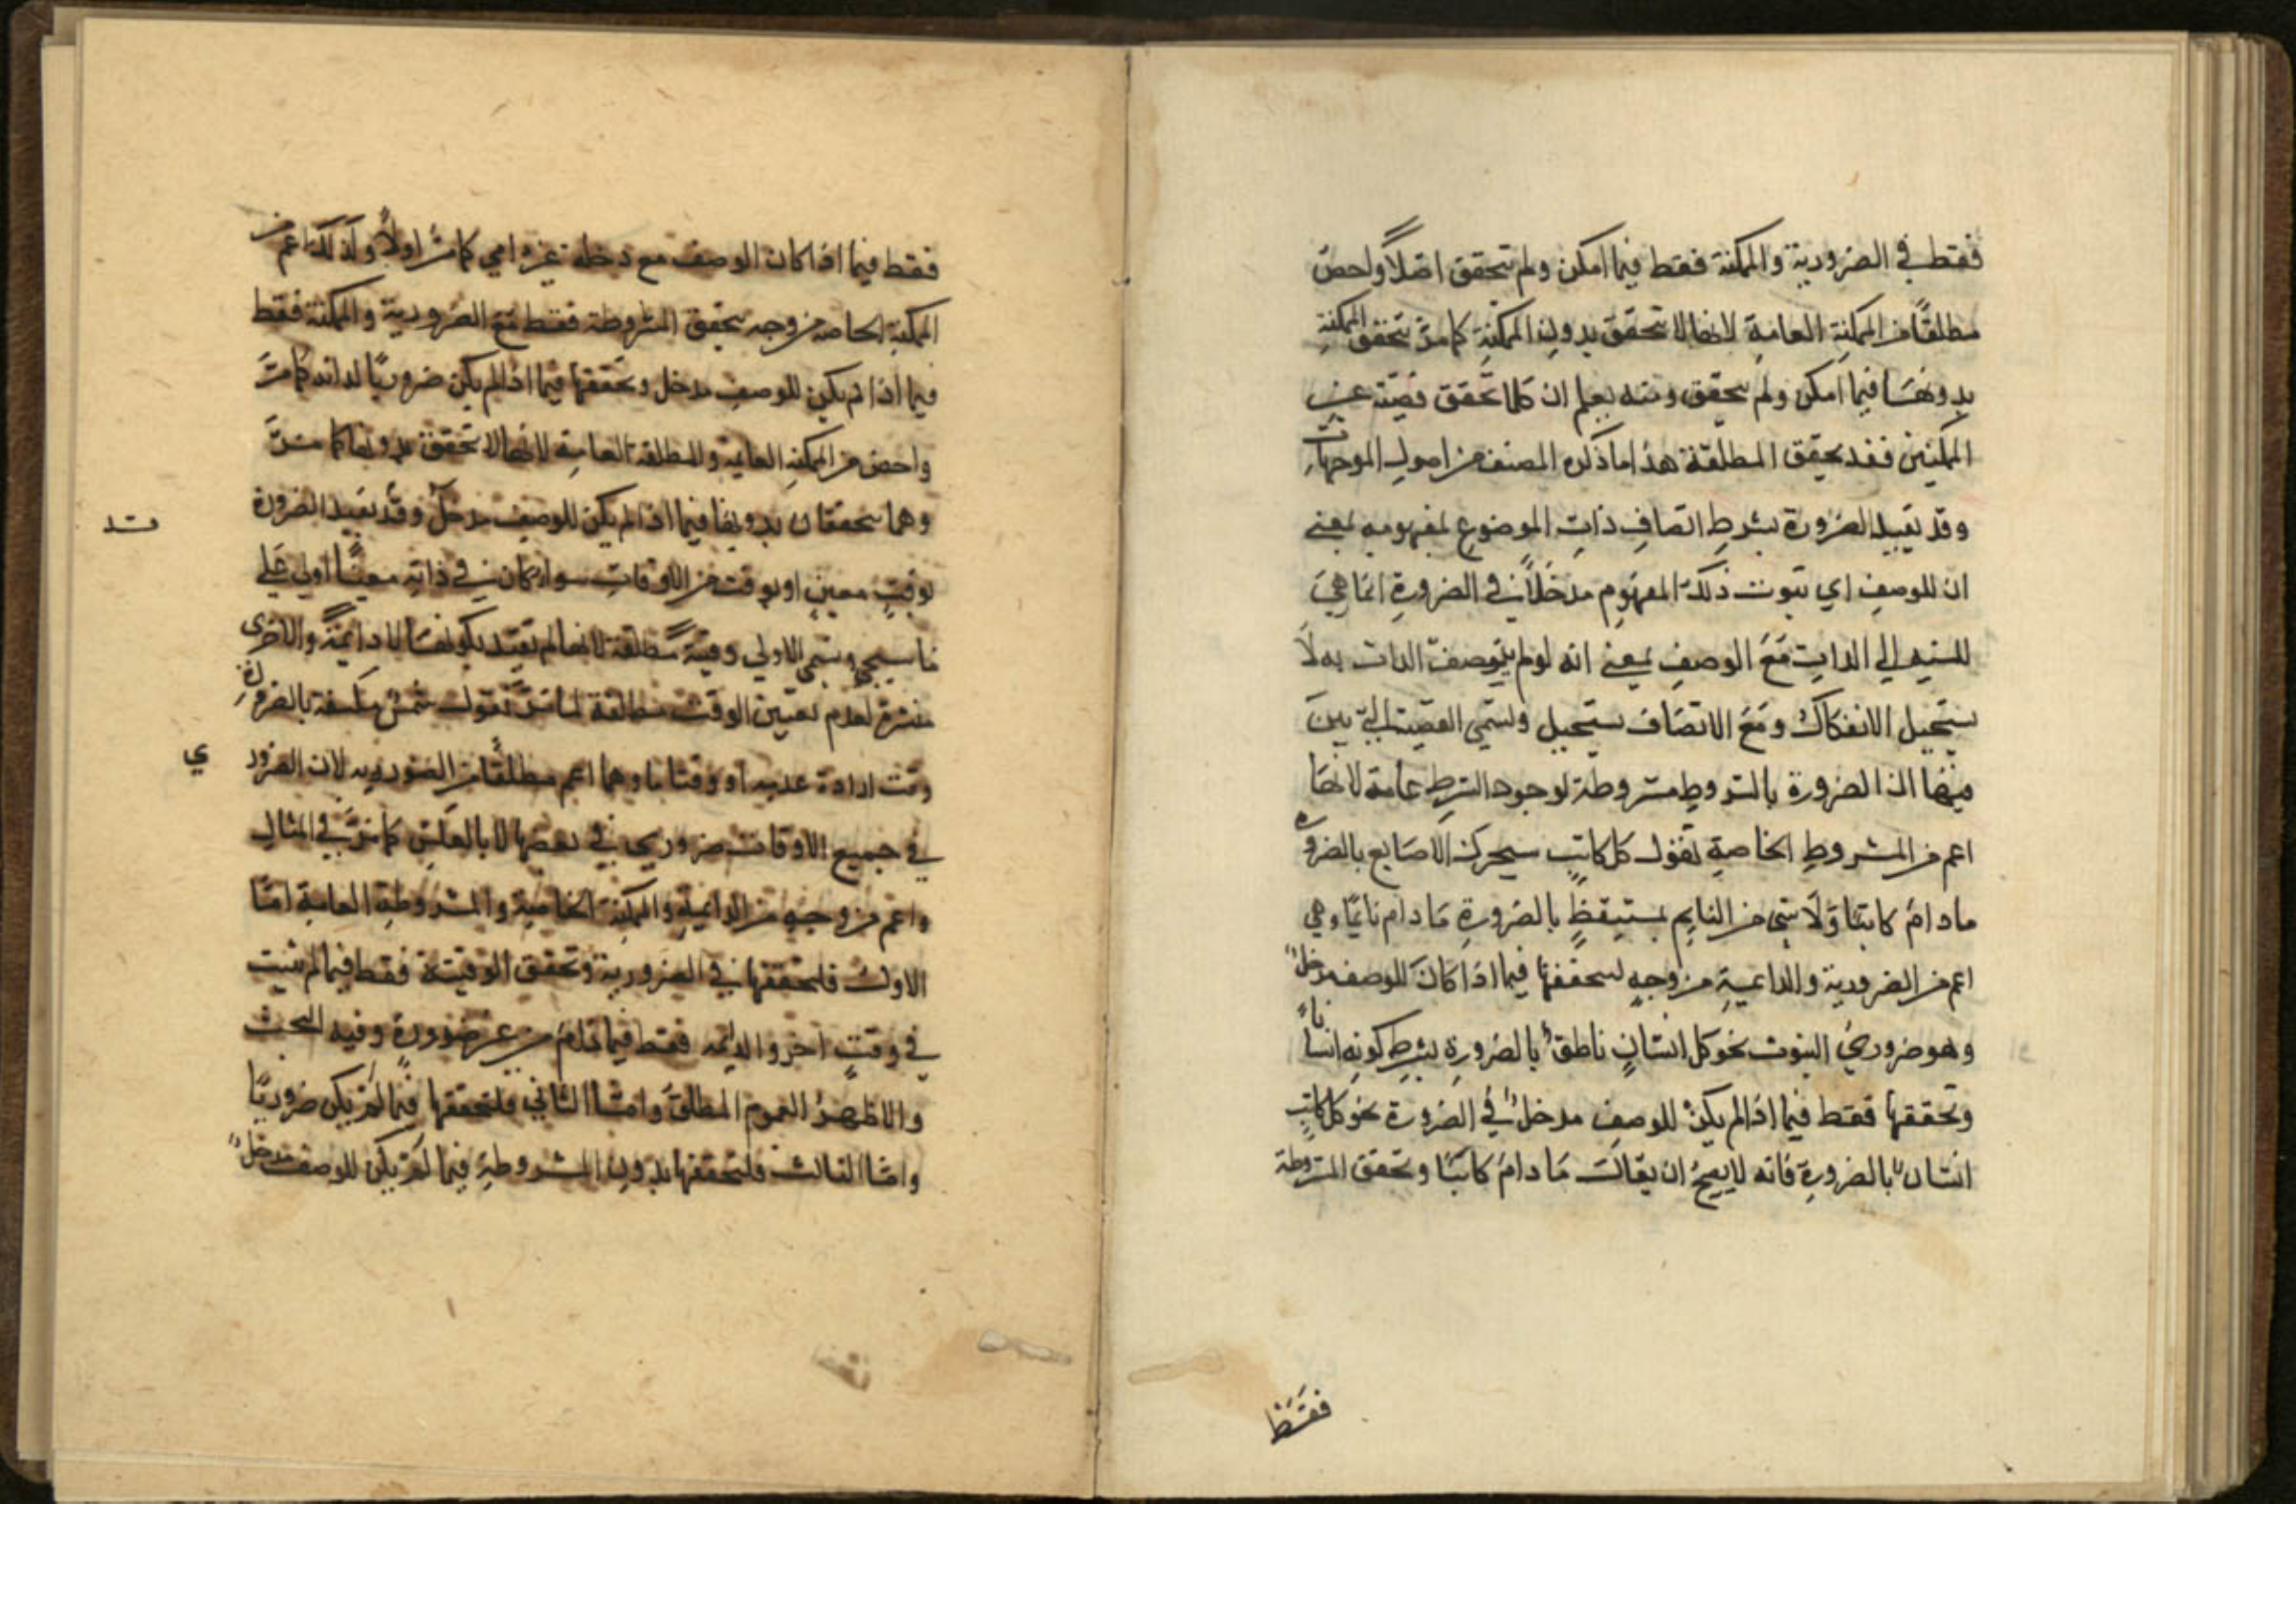 فقط في الضرورية والممكنة فقط فيما امكن ولم تتحقق اصلاً واخص
مطلقًا من الممكنة العامة لانها لا تتحقق بدون الممكنة كما مر وتتحقق الممكنة
بدونها فيما امكن ولم يتحقق ومنه يعلم ان كلما تحقق قضية غير
الممكنتين فقد تحقق المطلقة هذا ما ذكره المصنف من اصول الموجهات
وقد تقيد الضرورة بشرط اتصاف ذات الموضوع بمفهومه بمعنى
ان للوصف اي ثبوت ذلك المفهوم مدخلاً في الضرورة انما هي
للنسبة الى الذات مع الوصف بمعنى انه لو لم يتوصف الذات به لا
يستحيل الانفكاك ومع الاتصاف يستحيل وتسمى القضية التي بين
فيها الضرورة بالشروط مشروطة لوجود الشرط عامة لانها
اعم من المشروط الخاصة تقول كل كاتب متحرك الاصابع بالضرورة
ما دام كاتبًا ولا شي من النايم بمستيقظ بالضرورة ما دام نائمًا وهي
اعم من الضرورية والدائمية من وجه لتحققها فيما اذا كان للوصف مدخلٌ
وهو ضروري الثبوت نحو كل انسان ناطق بالضرورة بشرط كونه انسانًا
وتحققها فقط فيما اذا لم يكن للوصف مدخل في الضرورة نحو كل كاتب
انسان بالضرورة فانه لا يصح ان يقال ما دام كاتبًا وتحقق المشروطة
فقط
فقط فيما اذا كان الوصف مع دخله غير كما مر اولاً ولذلك اعم من
الممكنة الخاصة من وجه تحقق المشروطة فقط مع الضرورية والممكنة فقط
فيما اذا لم يكن للوصف مدخل وتحققها فيما اذا لم يكن ضروريًا لذاته كما مر
واخص من الممكنة العامة والمطلقة العامة لانها لا تتحقق بدونها كما مر
وهما تتحققان بدونها فيما اذا لم يكن للوصف مدخل وقد تقيد الضرورة
قد
بوقت معين او بوقت من الاوقات سواء كان في ذاته معينًا اولى على
ما سيجي وتسمى الاولى وقتية مطلقة لانها لم تقيد بكونها لا دائمة والاخرى
منتشرة لعدم تعيين الوقت مطلقة لما مر تقول شمس منكسفة بالضرورة
وقت ارادة عدمه او وقتا ما وهما اعم مطلقًا من الضرورية لان الضروري
ي
في جميع الاوقات ضروري في بعضها لا بالعكس كما مر في المثال
واعم من وجه من الدائمية والممكنة الخاصة والمشروطة العامة اما
الاول فلتحققها في الضرورية وتحقق الوقتية فقط فيما لم يثبت
في وقت اخر والدائمة فقط فيما دام من غير ضرورة وفيه البحث
والاظهر العموم المطلق واما الثاني فلتحققها فيما لم يكن ضروريًا
واما الثالث فلتحققها بدون المشروطة فيما لم يكن للوصف مدخلٌ